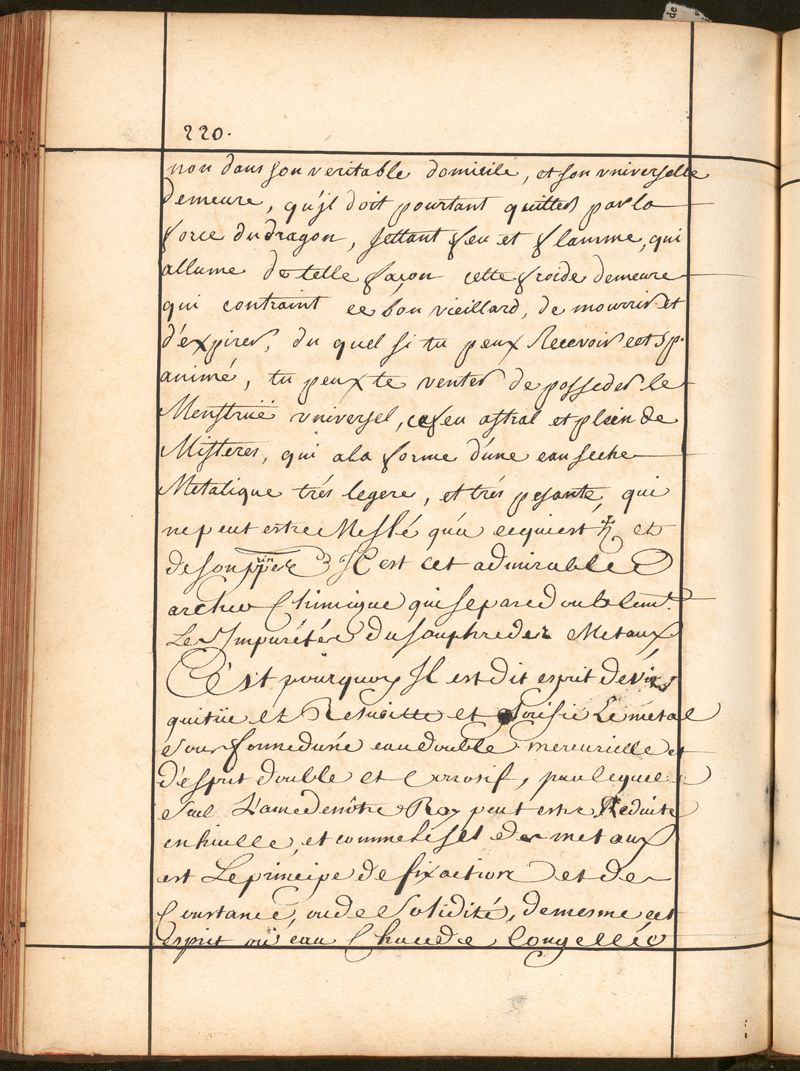 220.
non dans son veritable domicile, et son vniverselle
demeure, qu'jl doit pourtant quitter par la
force du dragon, jettant feu et flamme, qui
allume de telle façon cette froide demeure
qui contraint ce bon vieillard, de mourrir et
d'expirer, du quel si tu peux Recevoir cet sp.
animé, tu peux te venter de posseder le
Menstruë vniversel, ce feu astral et plein de
Misteres, qui a la forme d'une eau seche
Metalique trés legere, et trés pesante, qui
ne peut estre Meslé qu'a ce qui est ♄ et
de son Il est cet admirable
archeé Chimique qui separe doublemt.
Les Jmpurétés du souphre des Metaux
C'est pourquoy Il est dit esprit de
quitüe et Resusitte et Le metal
Sous forme d'une eau double mercurielle et
d'esprit double et Corrosif, par lequel
Seul L'ame de nôtre Roy peut estre Reduite
en huille, et comme le sel des metaux
est Le principe de fixaction et de
Constance, ou de Solidité, de mesme cet
Esprit ou eau Chaude Congellée
de